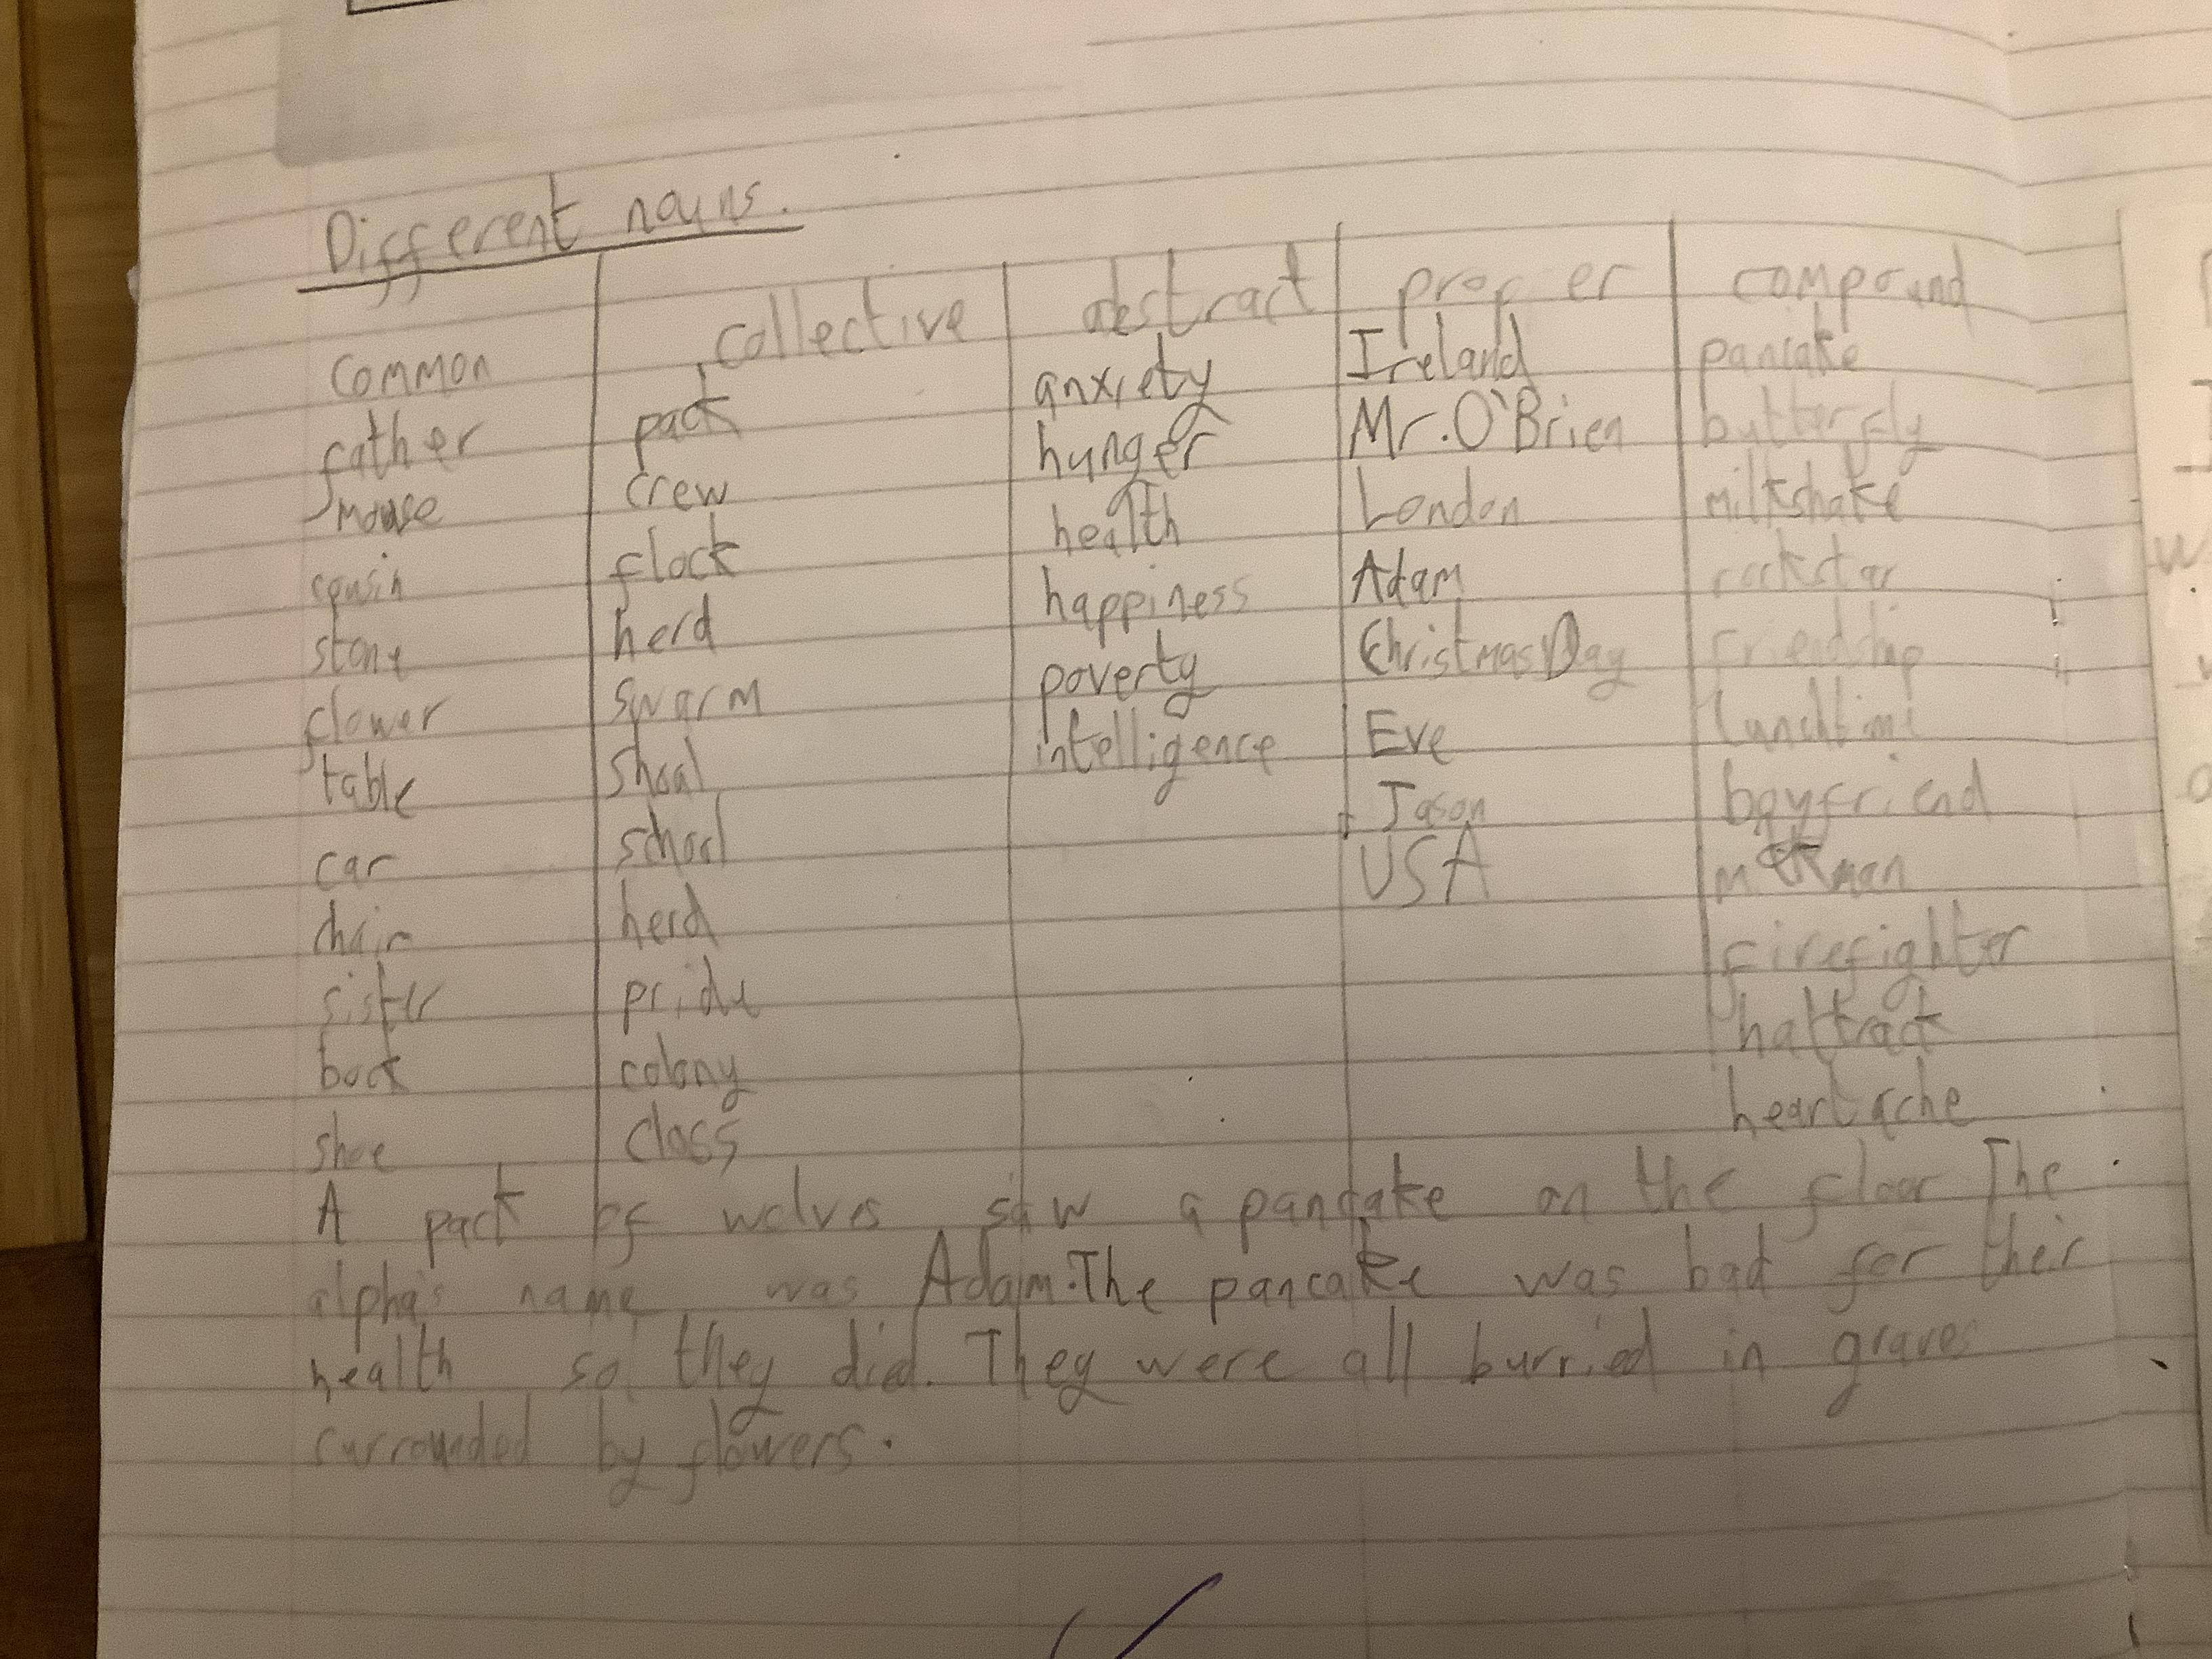 Different nouns.
common collective abstract proper compound
father pack anxiety Ireland pancake
mouse crew hunger Mr. O'Brien butterfly
cousin flock health London milkshake
stone herd happiness Adam rockstar
flower swarm poverty Christmas Day friendship
table shoal intelligence Eve lunchtime
car school Jason boyfriend
chair herd USA milkman
sister pride firefighter
book colony hattrack
shoe class heartache
A pack of wolves saw a pancake on the floor The
alpha's name was Adam. The pancake was bad for their
health so they died. They were all burried in graves
surrounded by flowers.